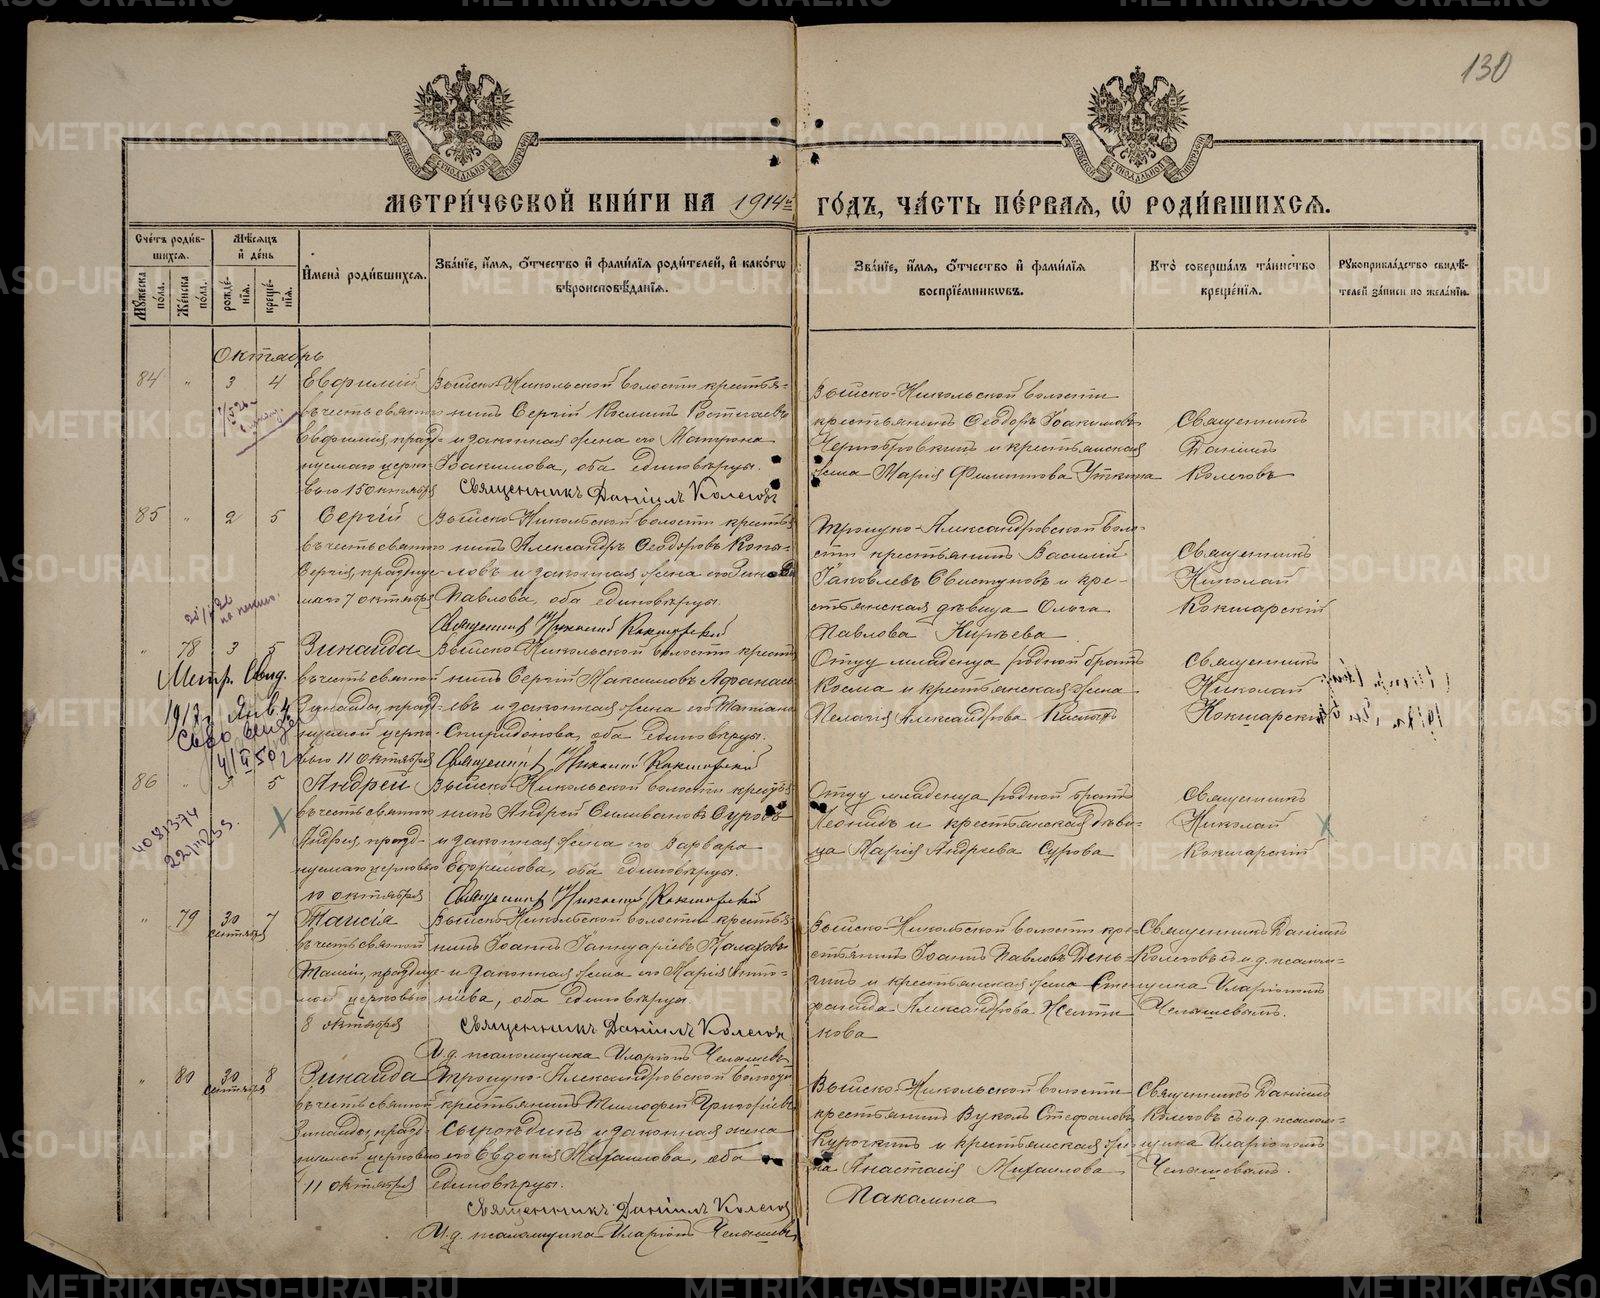 130
МЕТРИ́ЧЕСКОЙ КНИ́ГИ НА 1914й ГО́ДЪ, ЧА́СТЬ ПЕ́РВАЯ, Ѡ РОДИ́ВШИХСЯ.
Сче́тъ роди́вшихся.
Мꙋжеска по́ла.
Же́нска по́ла.
Мѣ́сяцъ и҆ де́нь
рожде́нїя.
креще́нїя.
И҆мена̀ роди́вшихся.
Зва́нїе, и҆́мя, ѻ҆́тчество и҆ фами́лїя роди́телей, и҆ како́гѡ вѣроисповѣ́данїя.
Зва́нїе, и҆́мя, ѻ҆́тчество и҆ фами́лїя воспрїе́мниковъ.
Кто̀ соверша́лъ та́инство креще́нїя.
Рꙋкоприкла́дство свидѣ́телей за́писи по жела́нїю.
Октябрь
84 " 3 4 Евфимій
въ честь святаго
Евфимія, празд-
нуемаго церко-
вью 15 октября
Выйско-Никольской волости крестья-
нинъ Сергій Косминъ
и законная жена его Матрона
Іоакимова, оба единовѣрцы.
Священникъ Даніилъ Колеговъ
Выйско-Никольской волости
крестьянинъ Ѳеодоръ Іоакимовъ
Чернобровкинъ и крестьянская
жена Марія Филиппова Уткина
Священникъ
Даніилъ
Колеговъ
85 " 2 5 Сергій
въ честь святаго
Сергія, празднуе-
маго 7 октября
Выйско-Никольской волости крестья-
нинъ Александръ Ѳеодоровъ Копы-
ловъ и законная жена его
Павлова, оба единовѣрцы.
Священникъ Николай Кокшарскій
Троицко-Александровской воло-
сти крестьянинъ Василій
Іаковлевъ Свистуновъ и кре-
стьянская дѣвица Ольга
Павлова Кирѣева
Священникъ
Николай
Кокшарскій
" 78 3 5 Зинаида
въ честь святой
Зинаиды, празд-
нуемой церко-
вью 11 октября
Выйско-Никольской волости крестья-
нинъ Сергій Максимовъ Аѳанась-
евъ и законная жена его Татіана
Спиридонова, оба единовѣрцы.
Священникъ Николай Кокшарскій
Отцу младенца родной братъ
Косма и крестьянская жена
Пелагія Александрова
Священникъ
Николай
Кокшарскій
Метр. Свид.
1917г. Янв. 4
86 " 3 5 Андрей
въ честь святаго
Андрея, празд-
нуемаго церковью
10 октября
Выйско-Никольской волости крестья-
нинъ Андрей Силивановъ Суровъ
и законная жена его Варвара
Ефремова, оба единовѣрцы.
Священникъ Николай Кокшарскій
Отцу младенца родной братъ
Леонидъ и крестьянская дѣви-
ца Марія Андреева Сурова
Священникъ
Николай
Кокшарскій
" 79 30 сентября 7 Таисія
въ честь святой
Таисіи, празднуе-
мой церковью
8 октября
Выйско-Никольской волости крестья-
нинъ Іоаннъ Іаннуаріевъ
и законная жена его Марія
оба единовѣрцы.
Священникъ Даніилъ Колеговъ
И.д. псаломщика Иларіонъ Челышевъ
Выйско-Никольской волости кре-
стьянинъ Іоаннъ Павловъ День-
гинъ и крестьянская жена Сте-
фанида Александрова
Священникъ Даніилъ
Колеговъ съ и.д. псалом-
щика Иларіономъ
Челышевымъ.
" 80 30 сентября 8 Зинаида
въ честь святой
Зинаиды, празд-
нуемой церковью
11 октября
Троицко-Александровской волости
крестьянинъ Тимофей Григорьевъ
Сыроѣдинъ и законная жена
его Евдокія Михаилова, оба
единовѣрцы.
Священникъ Даніилъ Колеговъ
И.д. псаломщика Иларіонъ Челышевъ
Выйско-Никольской волости
крестьянинъ Вуколъ Стефановъ
Курочкинъ и крестьянская же-
на Анастасія Михаилова
Пакалина
Священникъ Даніилъ
Колеговъ съ и.д. псалом-
щика Иларіономъ
Челышевымъ.
METRIKI.GASO-URAL.RU